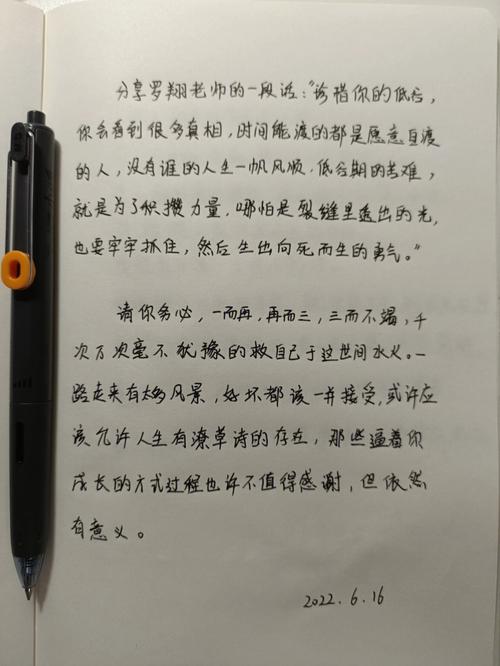 分享罗翔老师的一段话：“珍惜你的低谷，
你会看到很多真相，时间能渡的都是愿意自渡
的人，没有谁的人生一帆风顺．低谷期的苦难，
就是为了积攒力量，哪怕是裂缝里透出的光，
也要牢牢抓住，然后生出向死而生的勇气。”
请你务必，一而再，再而三，三而不竭，千
次万次毫不犹豫的救自己于这世间水火。一
路走来有太多风景，好坏都该一并接受，或许应
该允许人生有潦草诗的存在，那些逼着你
成长的方式过程也许不值得感谢，但依然
有意义。
2022.6.16